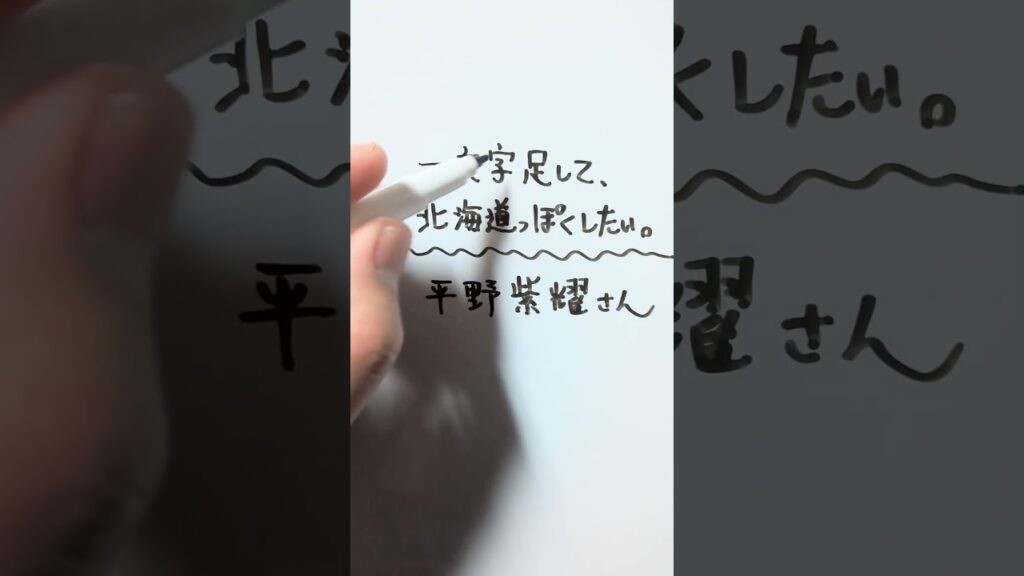 一文字足して、
北海道っぽくしたい。
平野紫耀さん